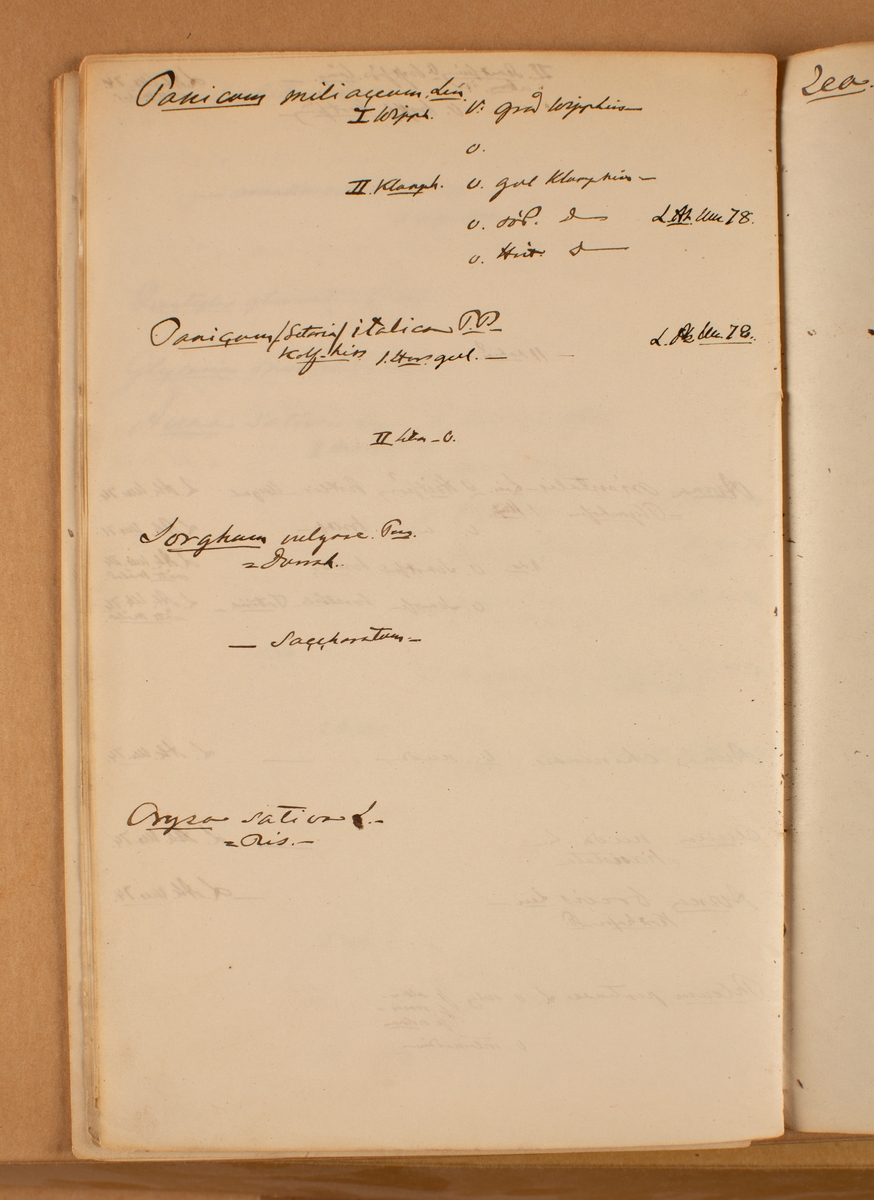 Panicum miliaceum. Lin.
I Wipph. v. grå Wipphirs —
v.
II. Klumph. v. gul Klumphirs —
v. röd. d — L. Ak. Um 78.
v. Hvit. d —
Panicum /Setaria/ italica P.B. L. Ak Um 78.
Kolf-hirs I. Hirs gul. —
II
Sorghum vulgare. Pers.
= Durrah.
— Saccharatum —
Oryza sativa L. —
= Ris. —
Zea